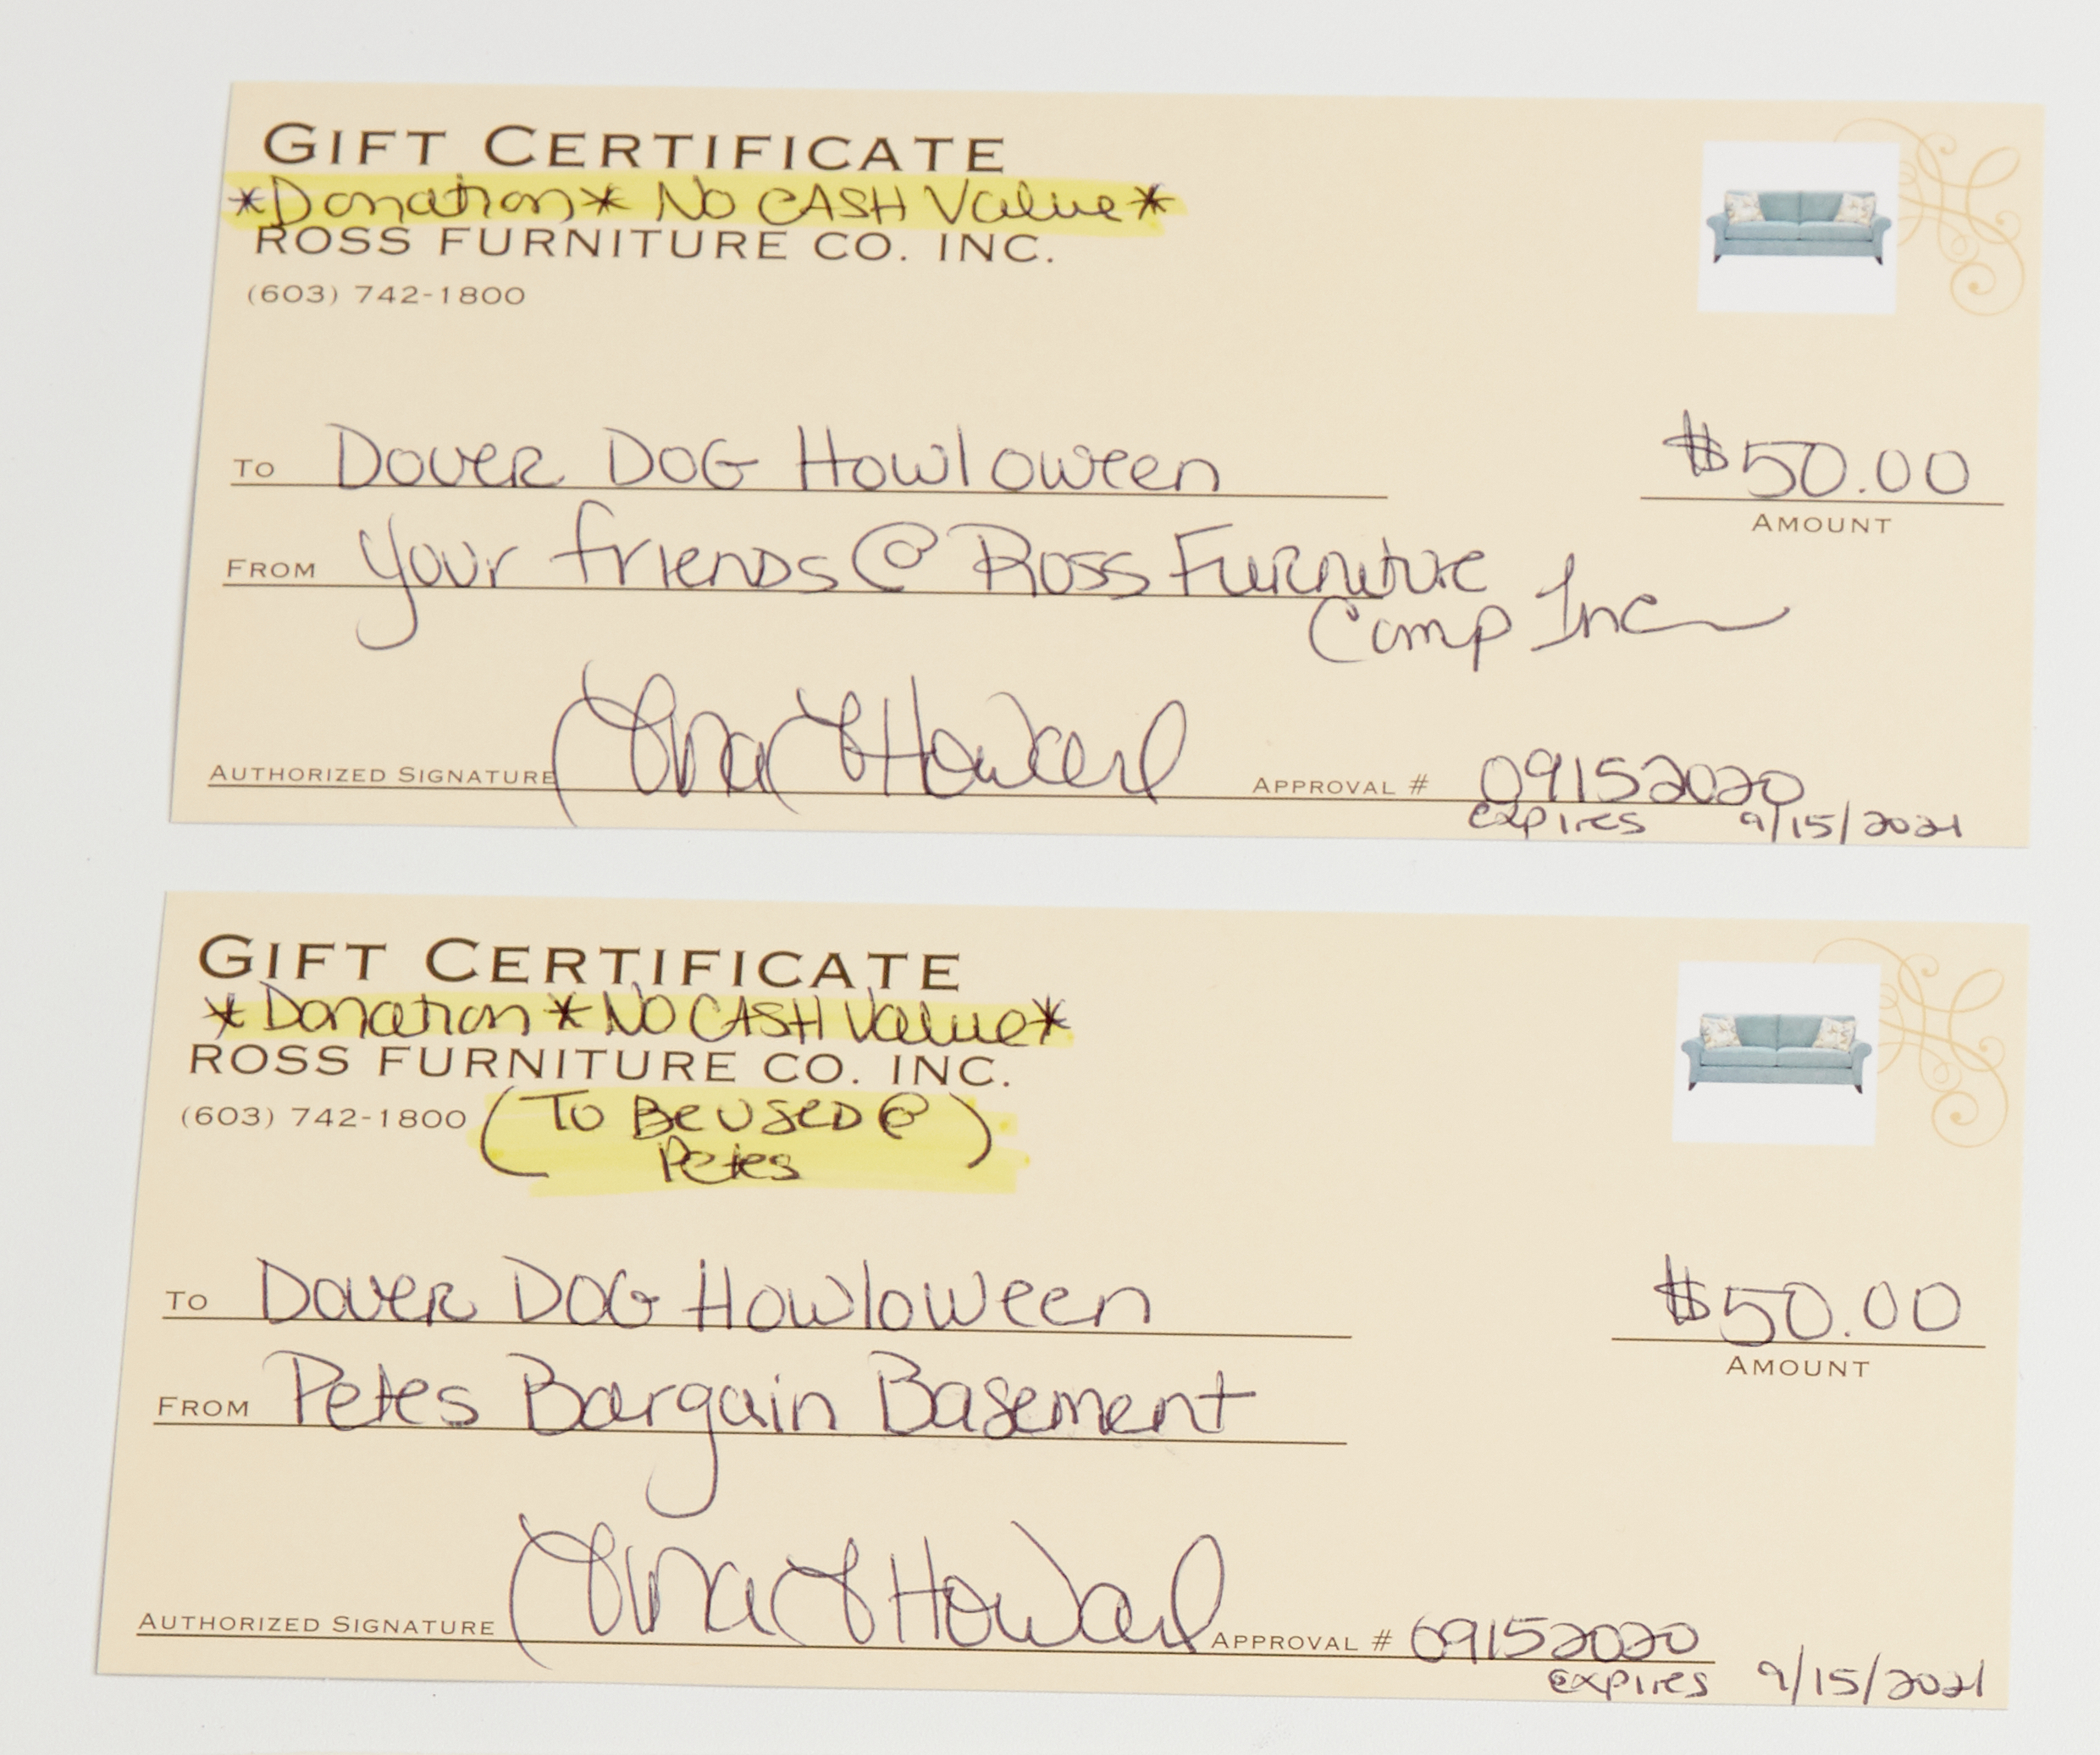 GIFT CERTIFICATE
*Donation* No CASH Value*
ROSS FURNITURE CO. INC.
(603) 742-1800
TO Dover DOG Howloween
$50.00
AMOUNT
FROM your friends @ Ross Furniture
Comp Inc
AUTHORIZED SIGNATURE Howard
APPROVAL # 09152020
expires 9/15/2021
GIFT CERTIFICATE
*Donation* NO CASH Value*
ROSS FURNITURE CO. INC.
(603) 742-1800 (To Be USED @
Petes)
TO Dover DOG Howloween
$50.00
AMOUNT
FROM Petes Bargain Basement
AUTHORIZED SIGNATURE Howard
APPROVAL # 09152020
expires 9/15/2021